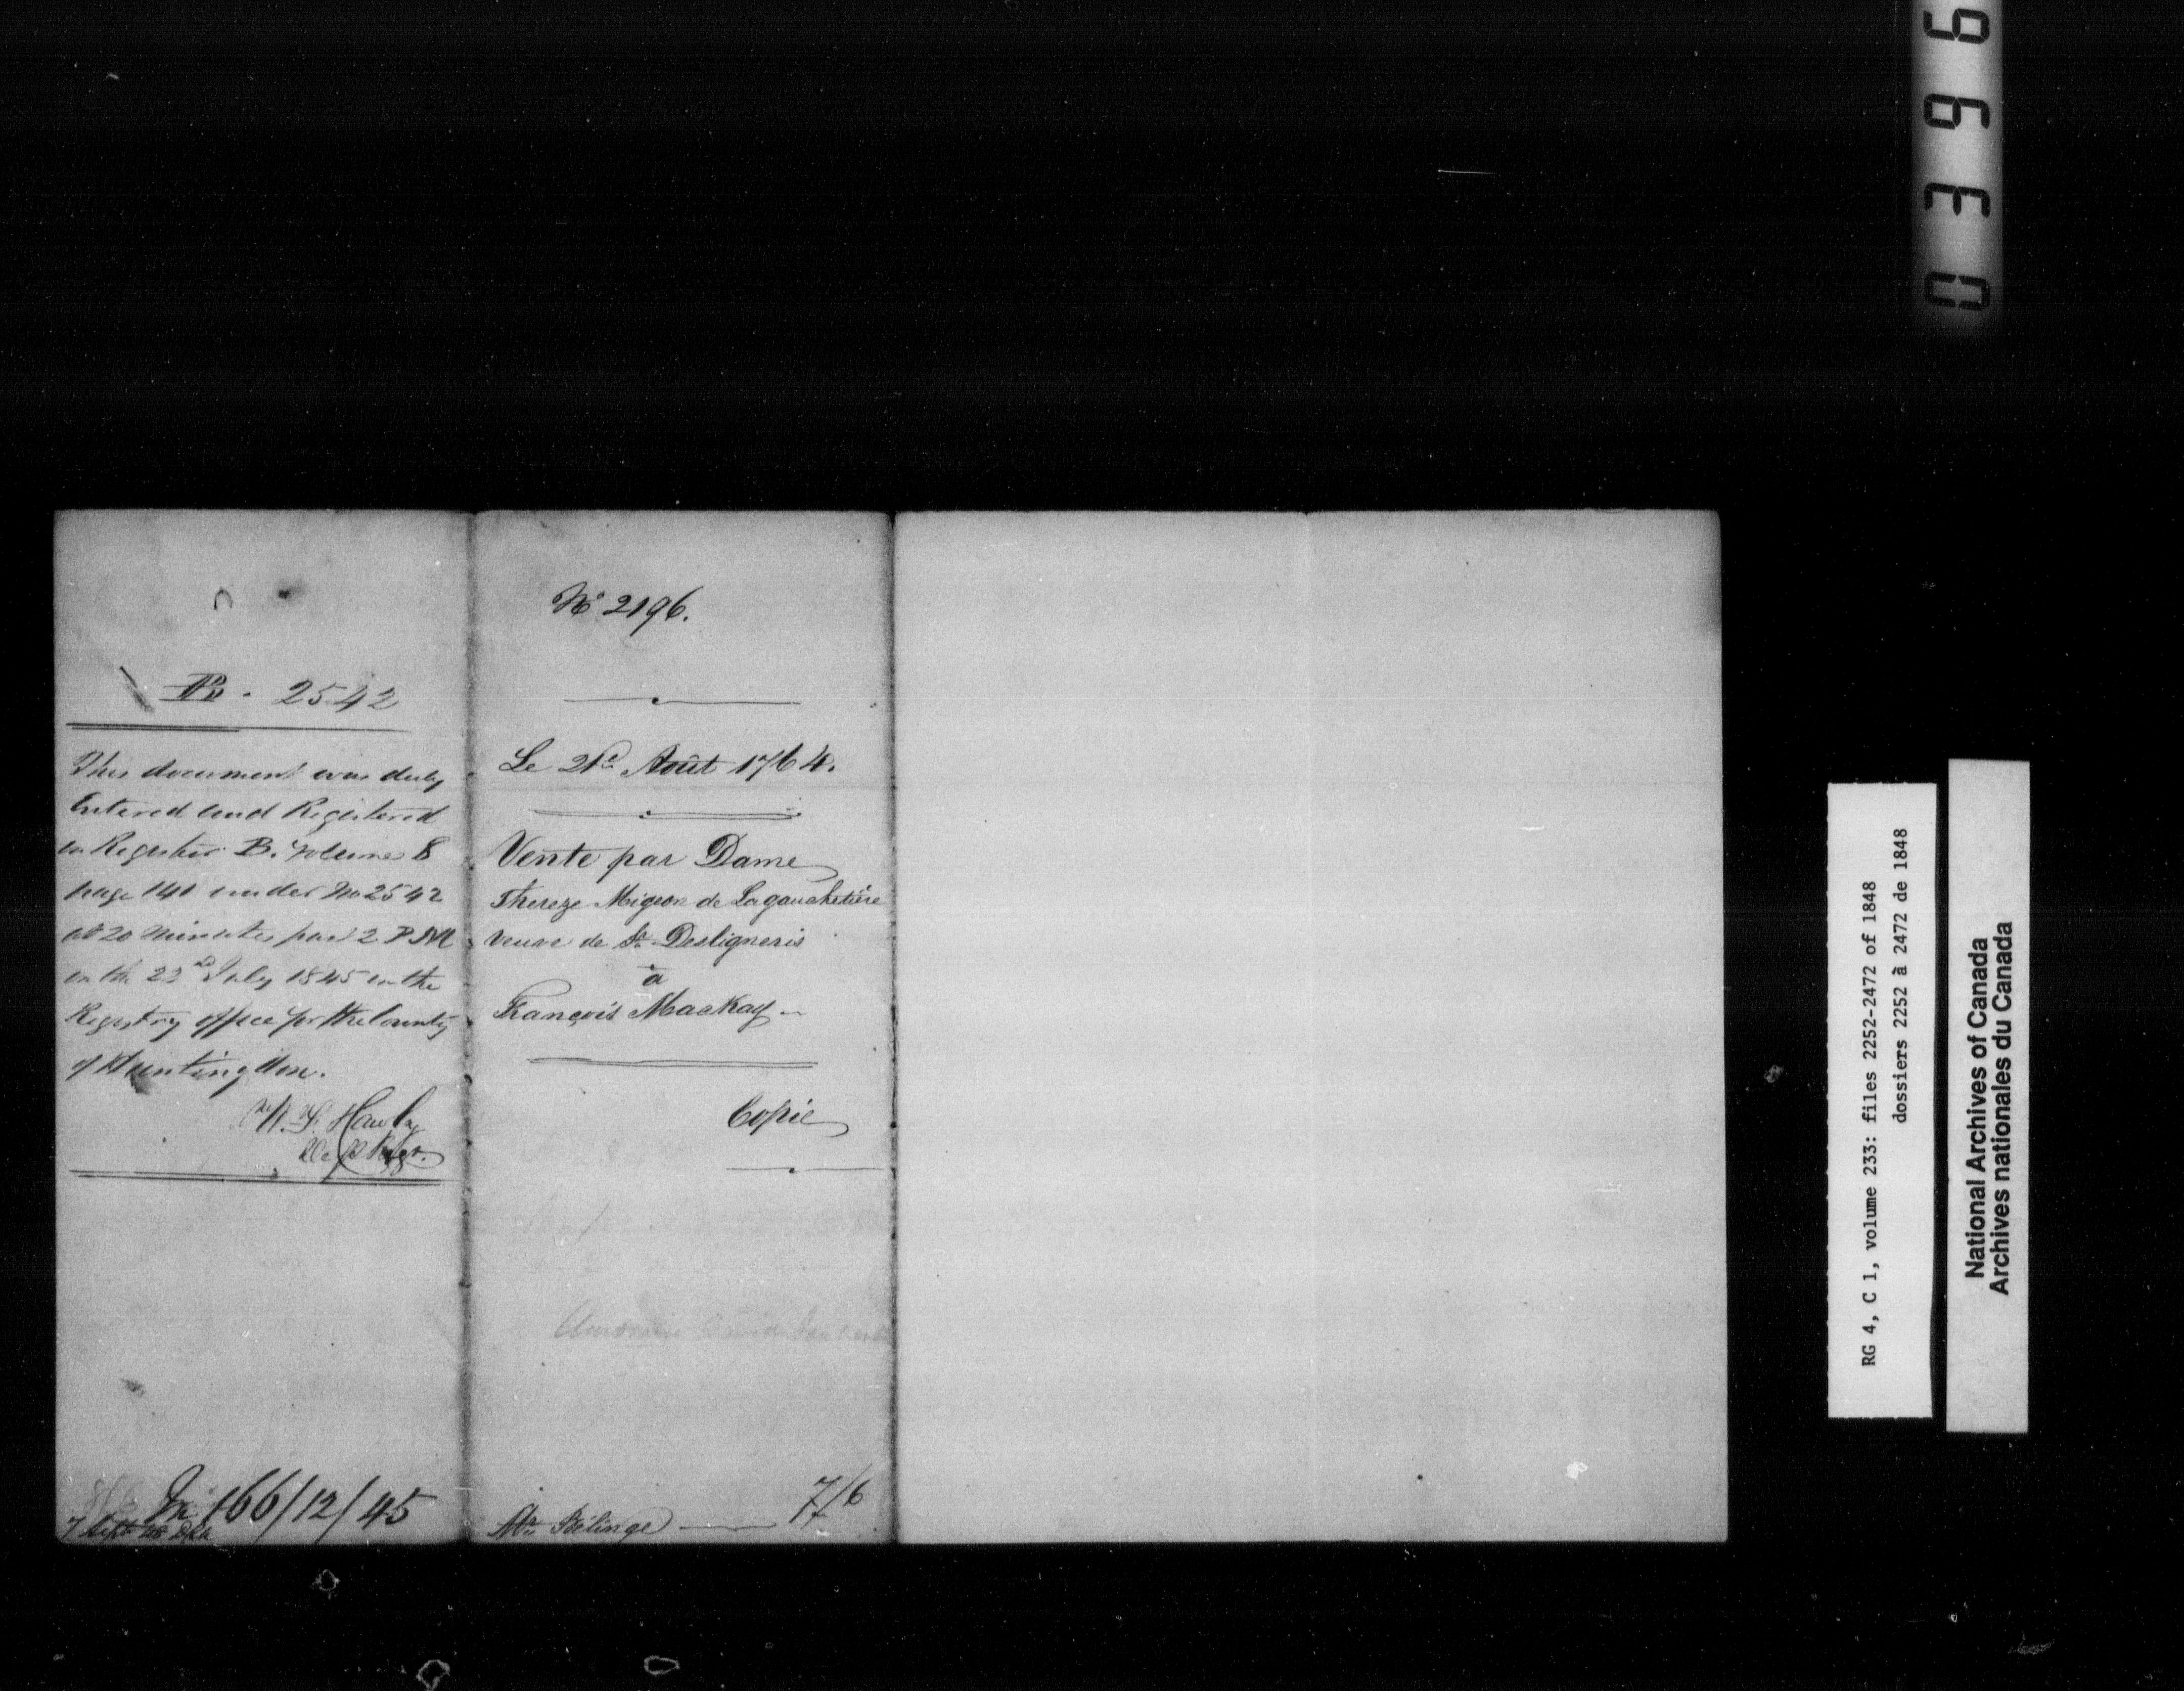 B. 2542
This document was duly
Entered and Registered
in Register B. Volume 8
page 141 under No 2542
at 20 minutes past 2 P M
on the 22nd July 1845 in the
Registry office for the County
of Huntingdon.
W. F. Hawley
Dep Regr.
166/12/45
7 Sept
No 2196.
Le 21e Août 1764.
Vente par Dame
Thereze Migeon de Lagauchetière
veuve de Sr Desligneris
à
François MacKay
Copie
Mr Bélinge — 7/6
0396
RG 4, C 1, volume 233: files 2252-2472 of 1848
dossiers 2252 à 2472 de 1848
National Archives of Canada
Archives nationales du Canada